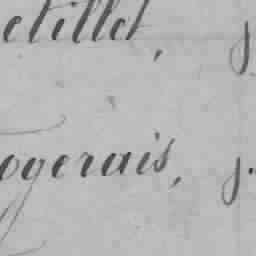 etillet, j
ogerais, j.